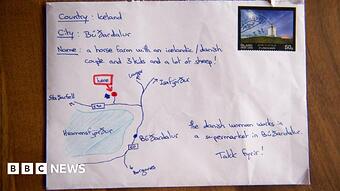 Country: Iceland
City: Búðardalur
Name: a horse farm with an icelandic/danish
couple and 3 kids and a lot of sheep!
here
Ísafjörður
Búðardalur
the danish woman works in
a supermarket in Búðardalur.
Takk fyrir!
ÍSLAND
BBC NEWS